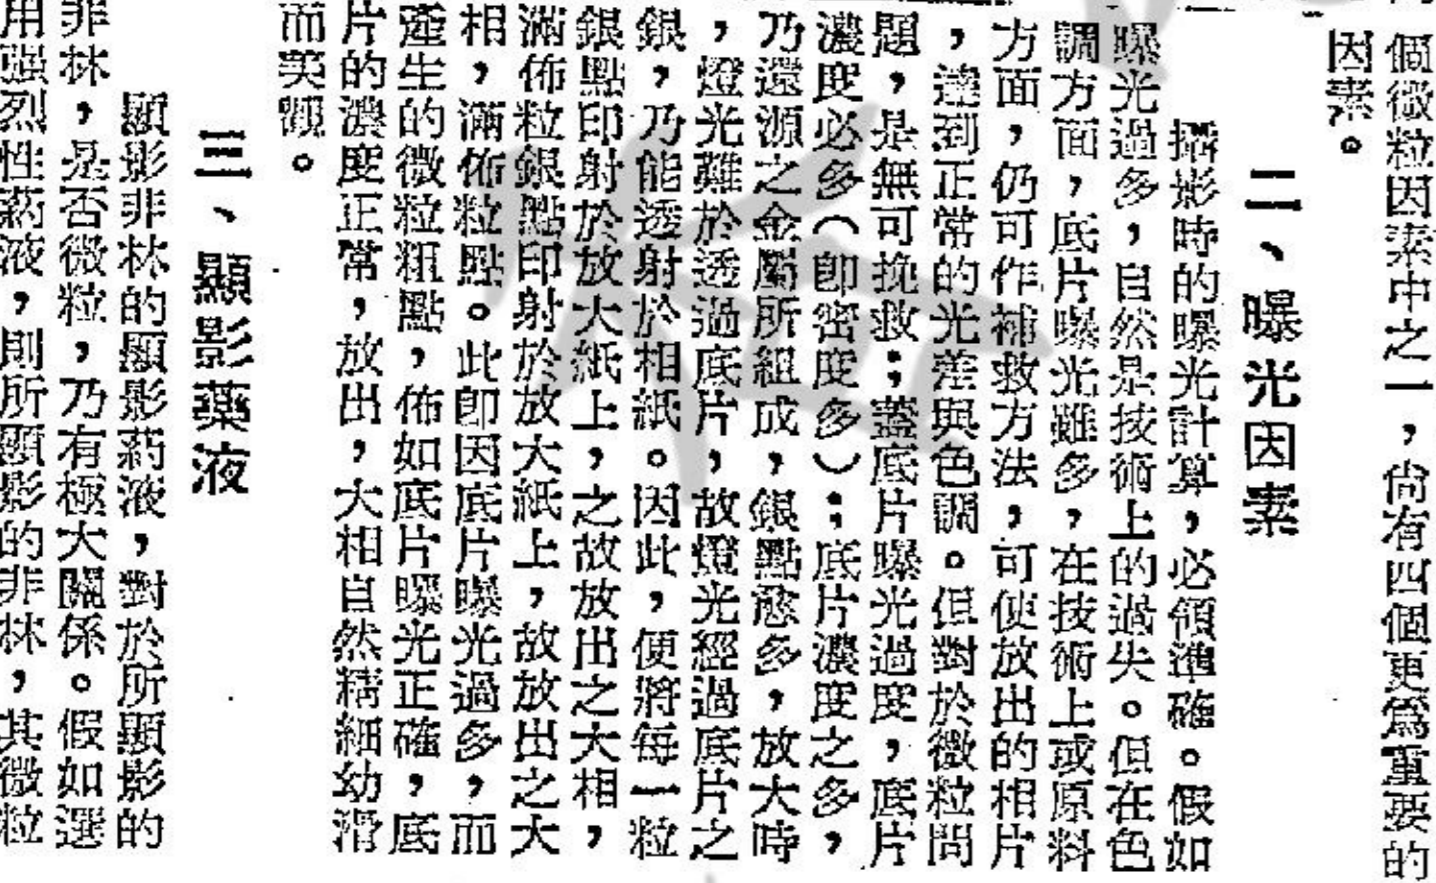 個微粒因素中之一，尙有四個更爲重要的
因素。
二、曝光因素
攝影時的曝光計算，必領準確。假如
曝光過多，自然是技術上的過失。但在色
調方面，底片曝光雖多，在技術上或原料
方面，仍可作補救方法，可使放出的相片
，達到正常的光差與色調。但對於微粒問
題，是無可挽救；蓋底片曝光過度，底片
濃度必多（卽密度多）；底片濃度之多，
乃還源之金屬所組成，銀點愈多，放大時
，燈光難於透過底片，故燈光經過底片之
銀，乃能透射於相紙。因此，便將每一粒
銀點印射於放大紙上，之故放出之大相，
滿佈粒銀點印射於放大紙上，故放出之大
相，滿佈粒點。此卽因底片曝光過多，而
產生的微粒粗點，佈如底片曝光正確，底
片的濃度正常，放出，大相自然精細幼滑
而美觀。
三、顯影藥液
顯影非林的顯影葯液，對於所顯影的
非林，是否微粒，乃有極大關係。假如選
用强烈性葯液，則所顯影的非林，其微粒